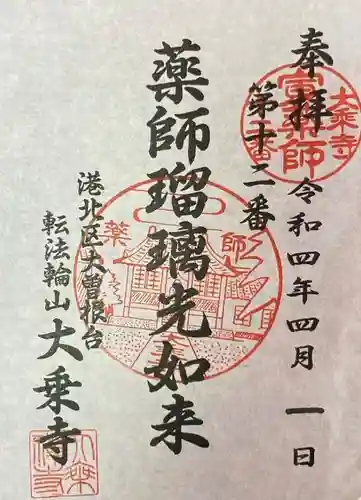 奉拝 令和四年四月一日
第十二番
薬師瑠璃光如来
港北区大曽根台
転法輪山 大乗寺
大乗寺
薬師